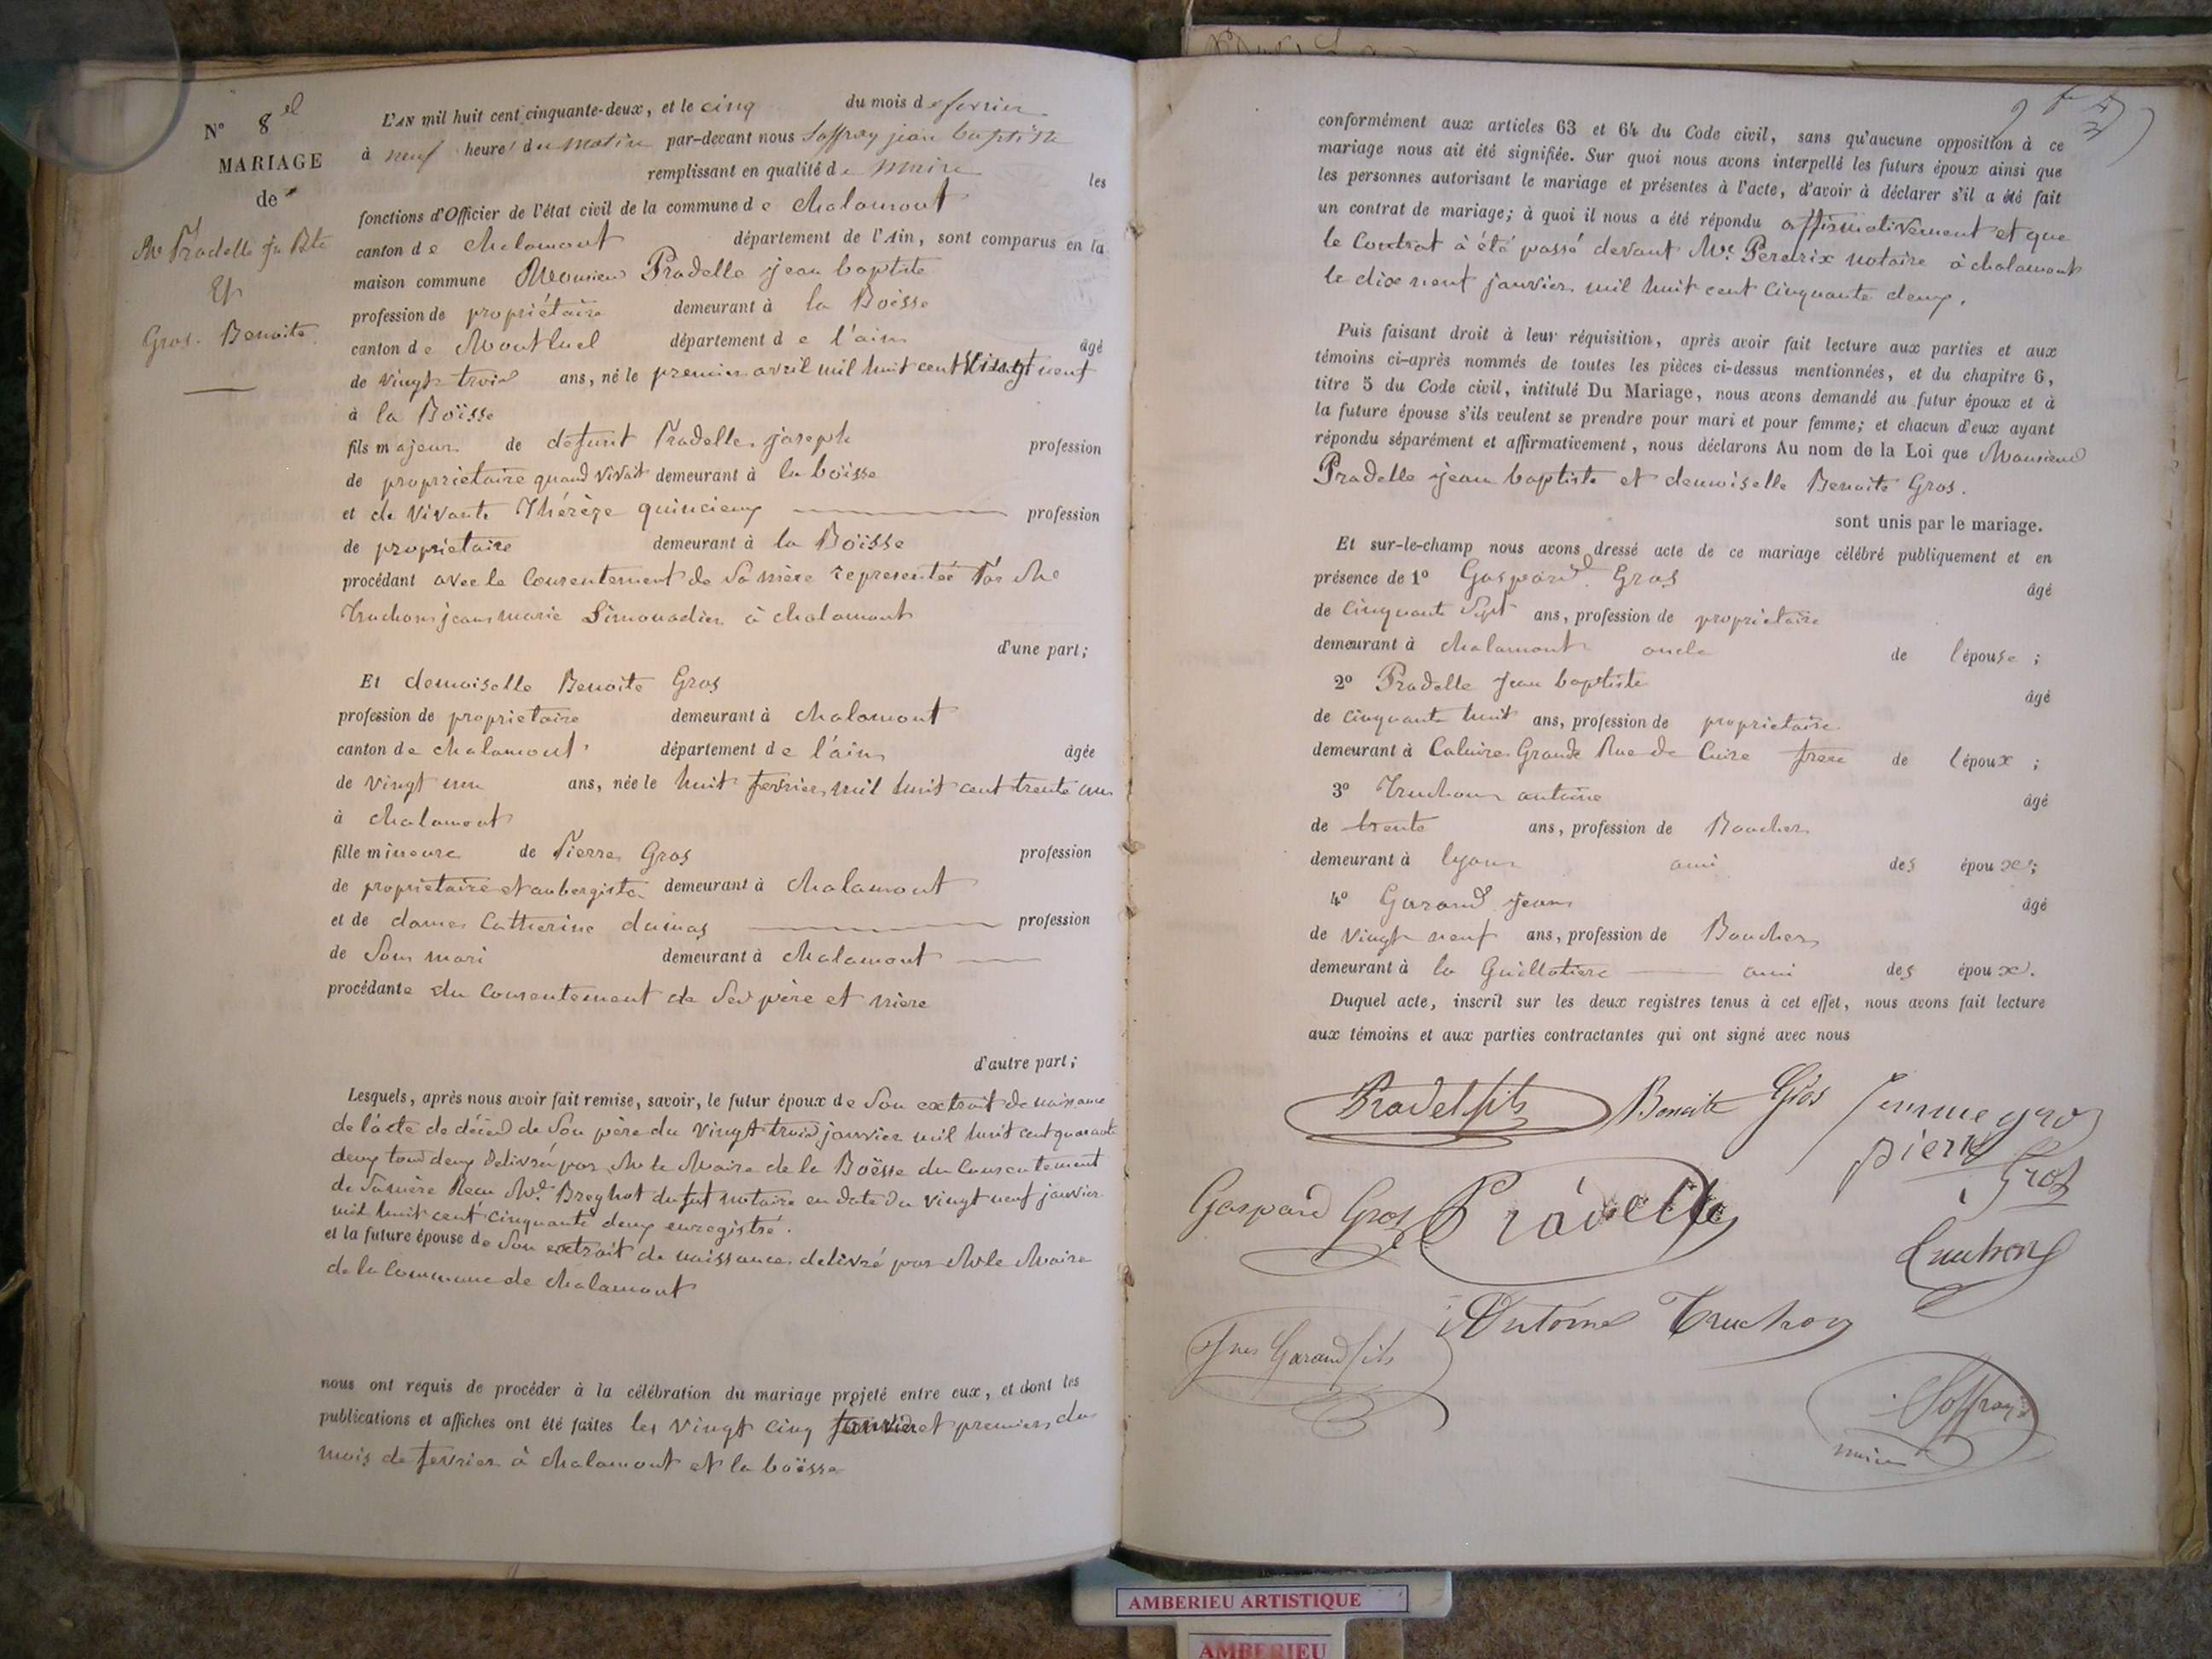 N° 8
MARIAGE
de
Mr Pradelle Jn Bte
Et
Gros. Benoite
L'AN mil huit cent cinquante-deux, et le cinq du mois de fevrier
à neuf heure du matin par-devant nous Soffray jean baptiste
remplissant en qualité de Maire les
fonctions d'Officier de l'état civil de la commune de Chalamont
canton de Chalamont département de l'Ain, sont comparus en la
maison commune Monsieur Pradelle jean baptiste
profession de propriétaire demeurant à la Boisse
canton de Montluel département de l'ain âgé
de vingt trois ans, né le premier avril mil huit cent vingt neuf
à la Boïsse
fils majeur de défunt Pradelle joseph profession
de propriétaire quand vivait demeurant à la boïsse
et de vivante Thérèze quincieux profession
de propriétaire demeurant à la Boïsse
procédant avec le Consentement de Sa mère representée Par Me
Truchon jean marie Limonadier à chalamont
d'une part;
Et demoiselle Benoite Gros
profession de proprietaire demeurant à chalamont
canton de chalamont département de l'ain âgée
de vingt un ans, née le huit fevrier mil huit cent trente un
à chalamont
fille mineure de Pierre Gros profession
de propriétaire et aubergiste demeurant à chalamont
et de dame Catherine dumas profession
de Son mari demeurant à chalamont
procédante du Consentement de Ses père et mère
d'autre part;
Lesquels, après nous avoir fait remise, savoir, le futur époux de Son extrait de naissance
de l'acte de décès de Son père du vingt trois janvier mil huit cent quarante
deux tous deux délivré par Mr le Maire de la Boësse du Consentement
de Sa mère Recu Md Breghot du lut notaire en date du vingt neuf janvier
mil huit cent cinquante deux enregistré.
et la future épouse de Son extrait de naissance delivré par Mr le Maire
de la Commune de Chalamont
nous ont requis de procéder à la célébration du mariage projeté entre eux, et dont les
publications et affiches ont été faites les vingt cinq janvier et premier du
mois de fevrier à chalamont et la boësse
conformément aux articles 63 et 64 du Code civil, sans qu'aucune opposition à ce
mariage nous ait été signifiée. Sur quoi nous avons interpellé les futurs époux ainsi que
les personnes autorisant le mariage et présentes à l'acte, d'avoir à déclarer s'il a été fait
un contrat de mariage; à quoi il nous a été répondu affirmativement et que
le Contrat à été passé devant Me Perdrix notaire à chalamont
le dix neuf janvier mil huit cent cinquante deux.
Puis faisant droit à leur réquisition, après avoir fait lecture aux parties et aux
témoins ci-après nommés de toutes les pièces ci-dessus mentionnées, et du chapitre 6,
titre 5 du Code civil, intitulé Du Mariage, nous avons demandé au futur époux et à
la future épouse s'ils veulent se prendre pour mari et pour femme; et chacun d'eux ayant
répondu séparément et affirmativement, nous déclarons Au nom de la Loi que Monsieur
Pradelle jean baptiste et demoiselle Benoite Gros.
sont unis par le mariage.
Et sur-le-champ nous avons dressé acte de ce mariage célébré publiquement et en
présence de 1° Gaspard Gros âgé
de cinquante Sept ans, profession de propriétaire
demeurant à chalamont oncle de l'épouse ;
2° Pradelle Jean baptiste âgé
de cinquante huit ans, profession de propriétaire
demeurant à Caluire Grande Rue de Cuire frere de l'époux ;
3° Truchon antoine âgé
de trente ans, profession de Boucher
demeurant à lyon ami des époux;
4° Garand Jean âgé
de vingt neuf ans, profession de Boucher
demeurant à la Guillotiere ami des époux.
Duquel acte, inscrit sur les deux registres tenus à cet effet, nous avons fait lecture
aux témoins et aux parties contractantes qui ont signé avec nous
Pradel fils Benoite Gros femme gro
pierre Gros
Gaspard Gros Pradelle
Truchon
Antoine Truchon
Garand fils
Soffray
maire
AMBERIEU ARTISTIQUE
AMBERIEU